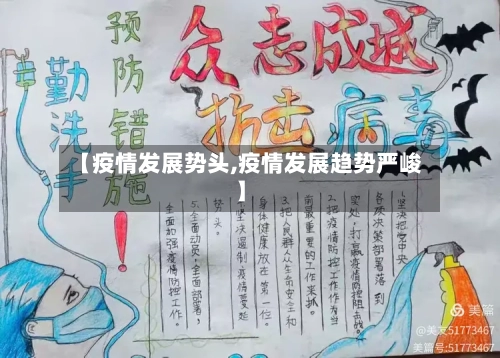 众志成城
抗击病毒
预防错施！
勤洗手
【疫情发展势头,疫情发展趋势严峻
】
1.坚决把党中央
各项决策部署落到
实处，打赢疫情防控阻击战。
2.把疫情防控工作作为当
前最重要的工作来抓。
3.把人民群众生命安全和
身体健康放在第一位。
坚决遏制疫情蔓延
势头。
5.全面动员，全面部署，
全面加强疫情防控工作。
美篇
@美友51773467
美篇号:51773467